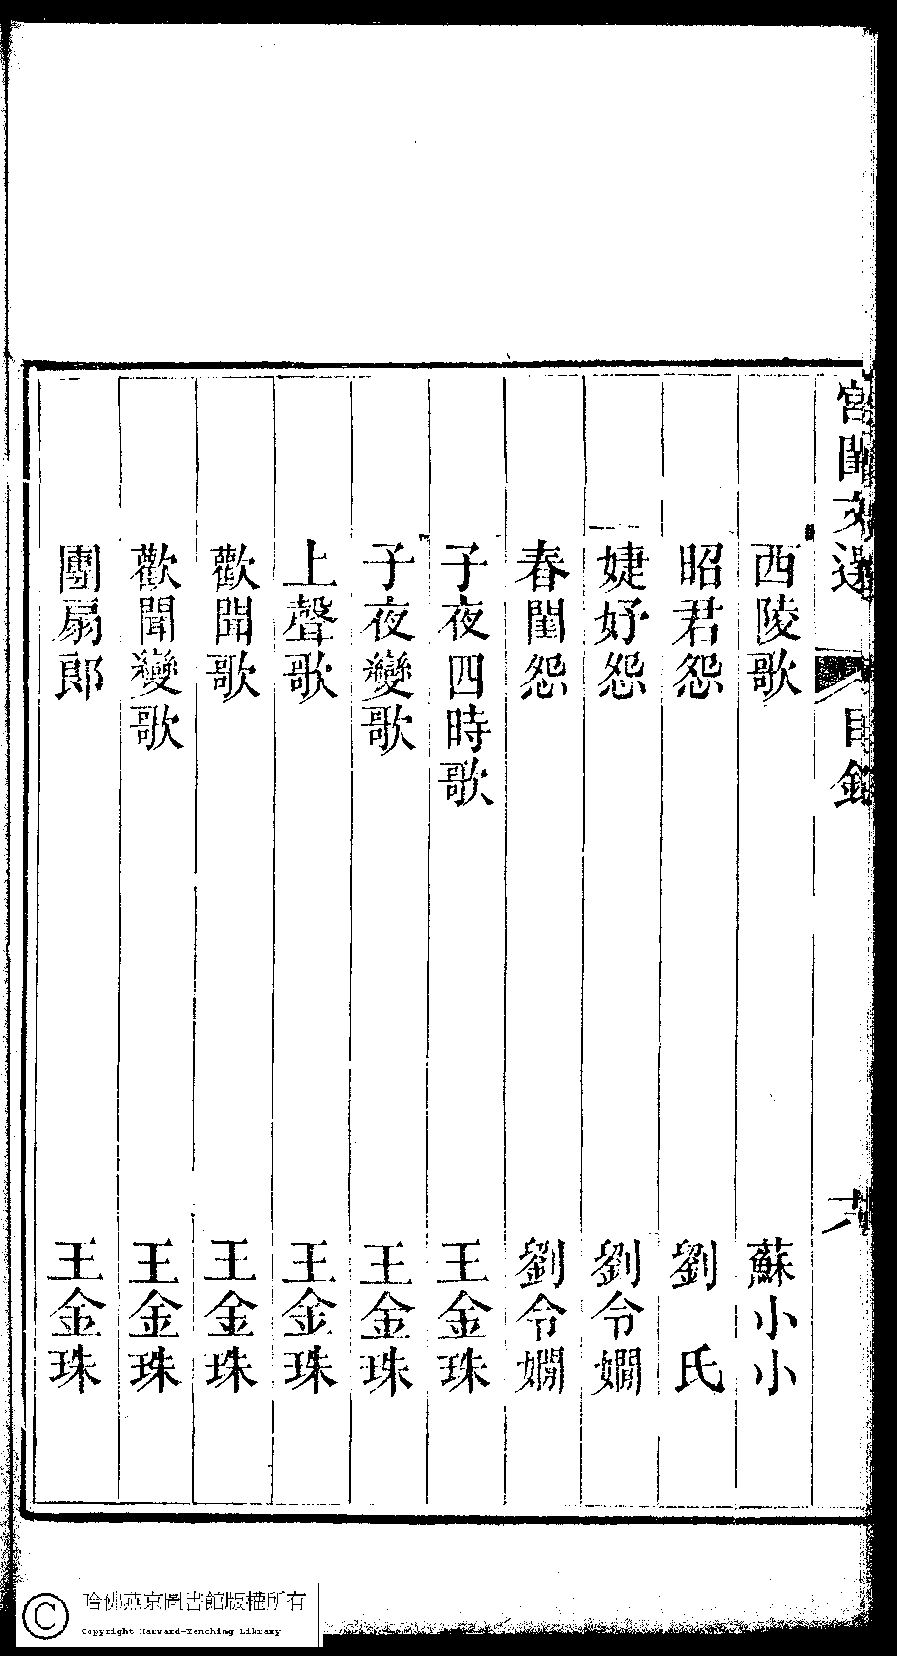 宮閨文選 目錄 六
西陵歌 蘇小小
昭君怨 劉氏
婕妤怨 劉令嫺
春閨怨 劉令嫺
子夜四時歌 王金珠
子夜變歌 王金珠
上聲歌 王金珠
歡聞歌 王金珠
歡聞變歌 王金珠
團扇郎 王金珠
哈佛燕京圖書館版權所有
Copyright Harvard-Yenching Library